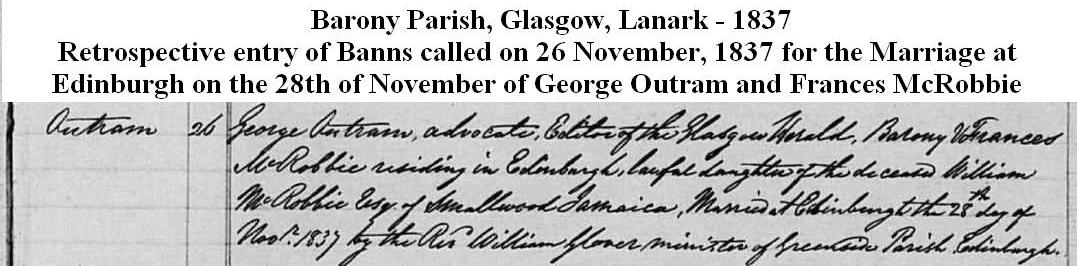 Barony Parish, Glasgow, Lanark - 1837
Retrospective entry of Banns called on 26 November, 1837 for the Marriage at
Edinburgh on the 28th of November of George Outram and Frances McRobbie
Outram 26 George Outram, advocate, Editor of the Glasgow Herald, Barony & Frances
McRobbie residing in Edinburgh, lawful daughter of the deceased William
McRobbie Esq. of Smallwood Jamaica, Married at Edinburgh the 28th day of
Novr. 1837 by the Revd William Glover minister of Greenside Parish Edinburgh.